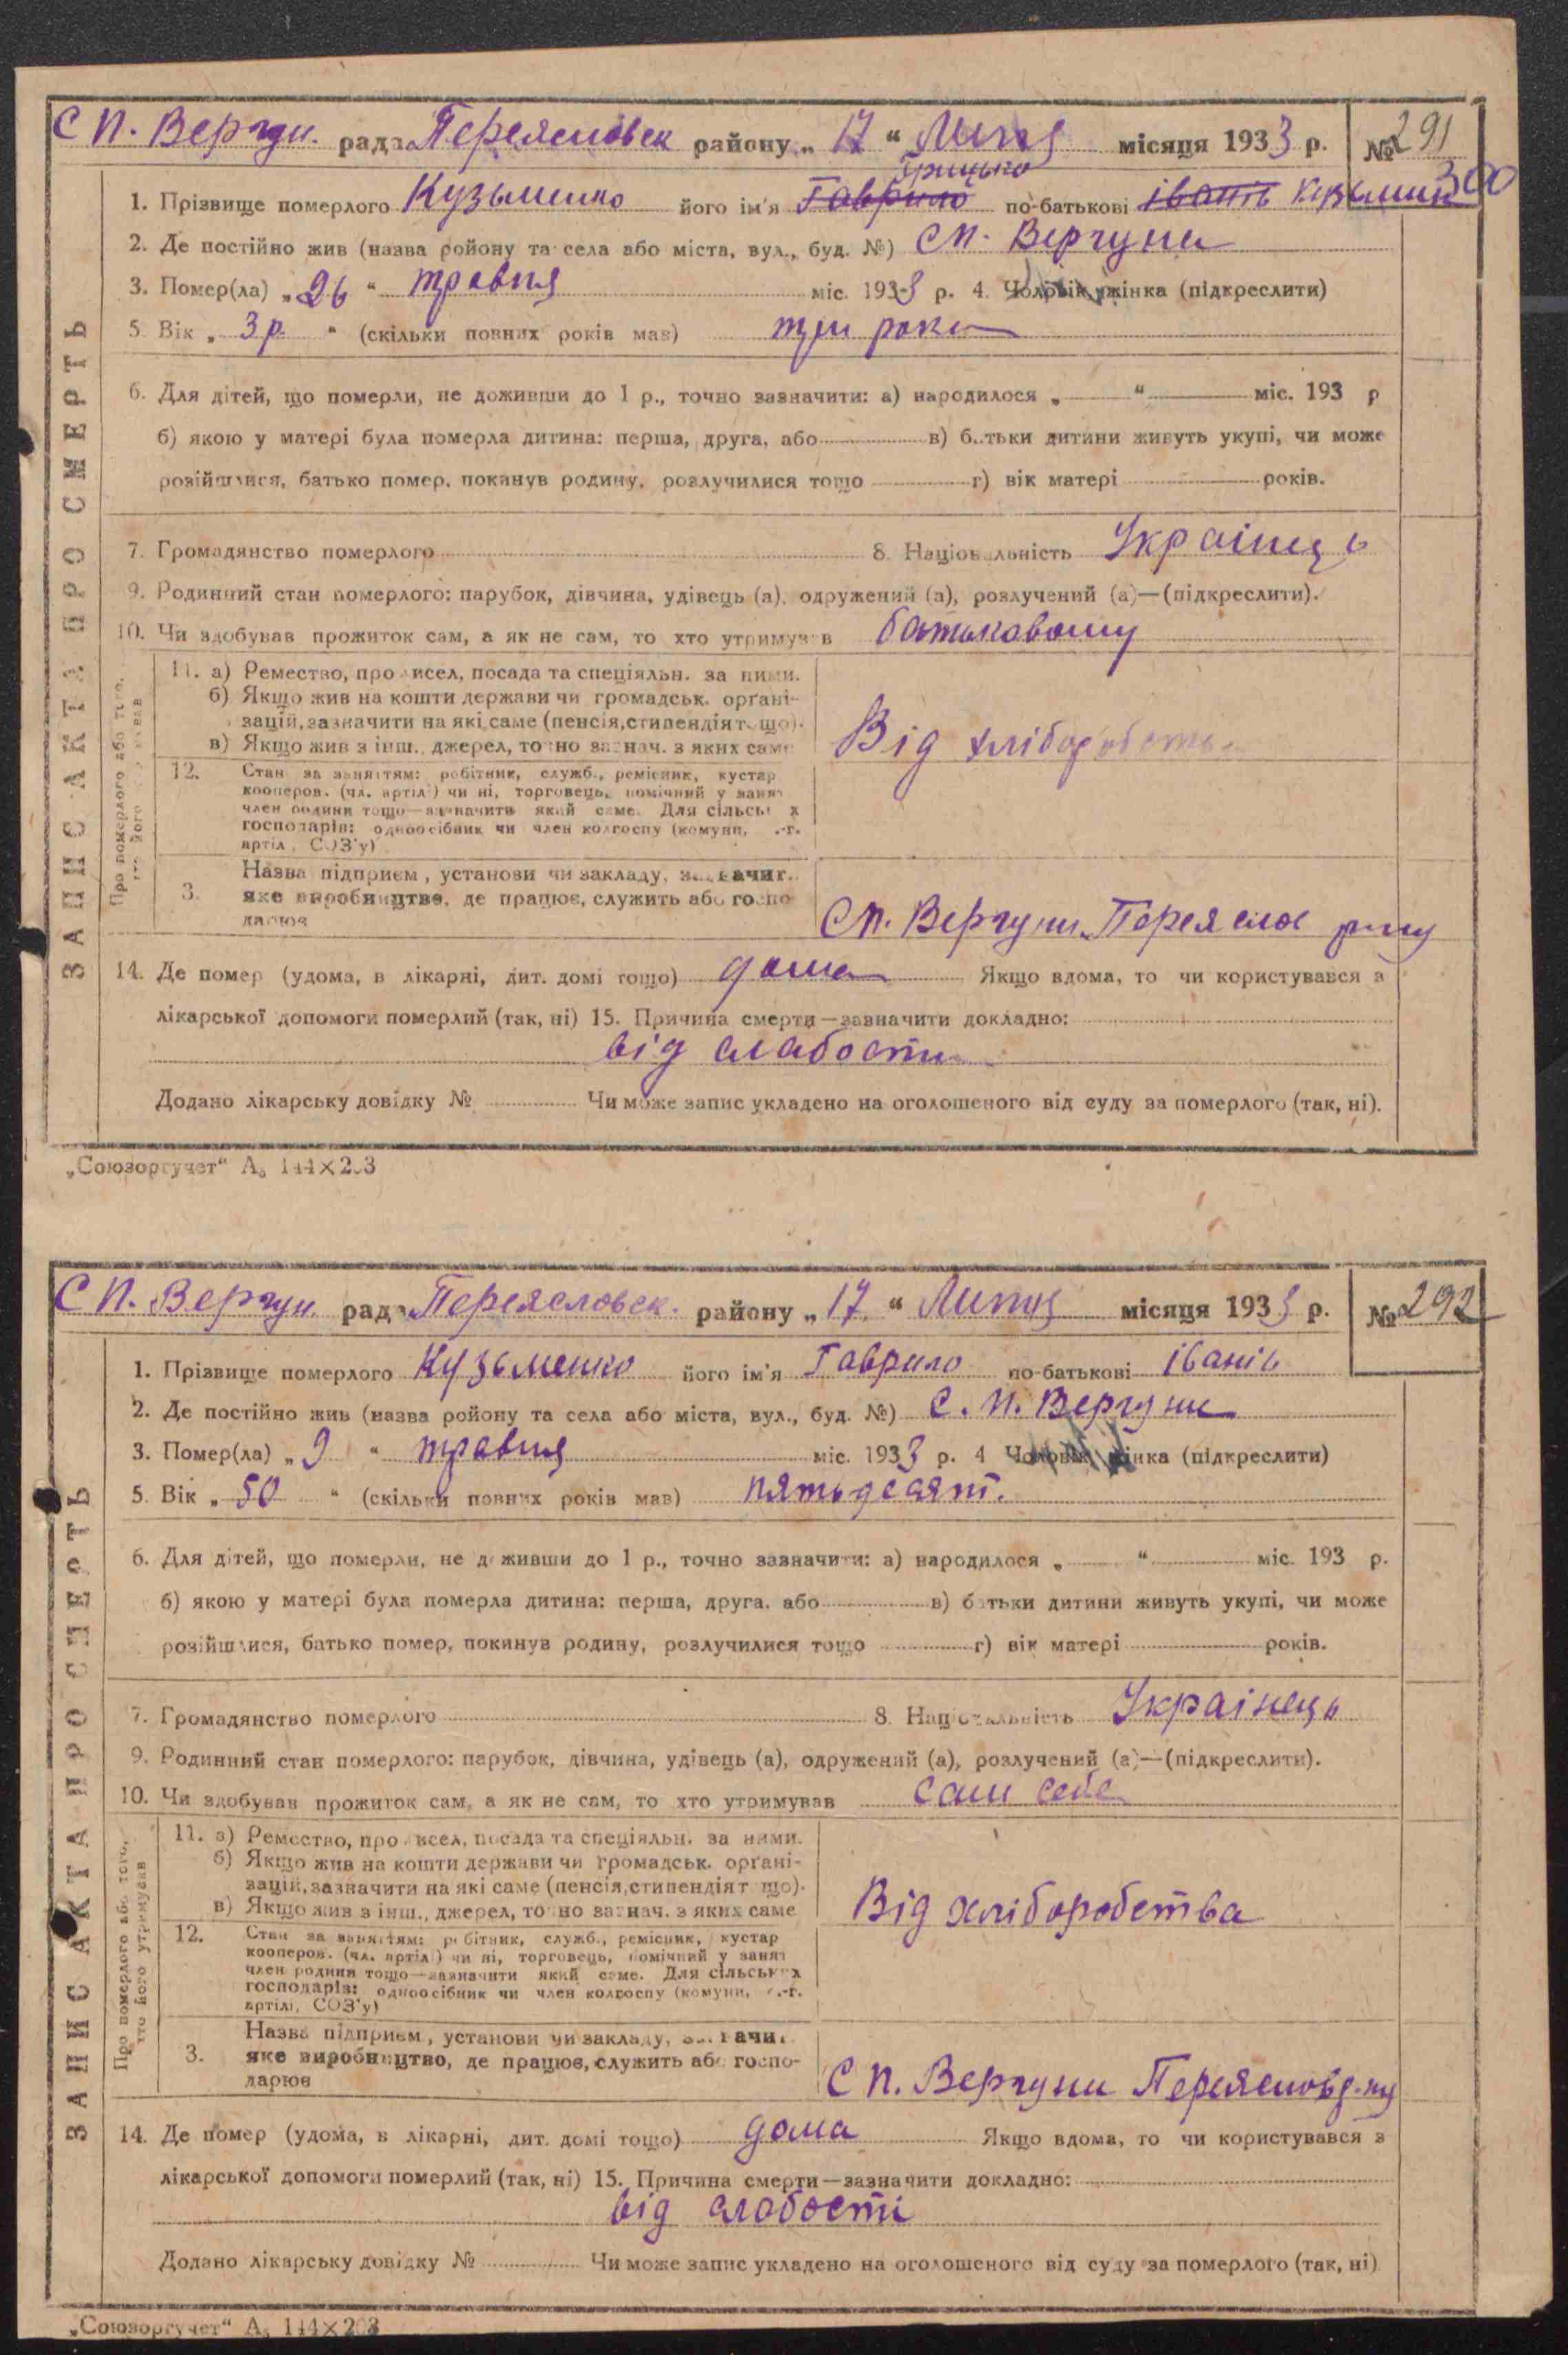 С П. Вергун. рада Переясловськ району „ 17 “ Липня місяця 1933 р. № 291
300
Грицько
1. Прізвище померлого Кузьменко його ім'я Гаврило по-батькові іванів
2. Де постійно жив (назва району та села або міста, вул., буд. №) СП. Вергуни
3. Помер(ла) „ 26 “ травня міс. 1933 р. 4. Чоловік, жінка (підкреслити)
5. Вік „ 3 р. “ (скільки повних років мав) три роки
6. Для дітей, що померли, не доживши до 1 р., точно зазначити: а) народилося „ “ міс. 193 р
б) якою у матері була померла дитина: перша, друга, або в) батьки дитини живуть укупі, чи може
розійшлися, батько помер, покинув родину, розлучилися тощо г) вік матері років.
7. Громадянство померлого 8. Національність Українець
9. Родинний стан померлого: парубок, дівчина, удівець (а), одружений (а), розлучений (а)—(підкреслити).
10. Чи здобував прожиток сам, а як не сам, то хто утримував
11. а) Ремество, промисел, посада та спеціяльн. за ними.
б) Якщо жив на кошти держави чи громадськ. орґані-
зацій, зазначити на які саме (пенсія, стипендія тощо).
в) Якщо жив з інш., джерел, точно зазнач. з яких саме
Від хліборобств
12. Стан за заняттям: робітник, служб., ремісник, кустар
кооперов. (чл. артілі) чи ні, торговець, помічний у занят
член родини тощо—зазначити який саме. Для сільськ х
господарів: одноосібник чи член колгоспу (комуни, с.-г.
артілі, СОЗ'у)
3. Назва підприєм, установи чи закладу, зазначит.
яке виробництво, де працює, служить або госпо-
дарює
СП. Вергуни Переяслов
14. Де помер (удома, в лікарні, дит. домі тощо) дома Якщо вдома, то чи користувався з
лікарської допомоги померлий (так, ні) 15. Причина смерти—зазначити докладно:
від слабости
Додано лікарську довідку № Чи може запис укладено на оголошеного від суду за померлого (так, ні).
ЗАПИС АКТА ПРО СМЕРТЬ
Про померлого або того,
хто його утримував
„Союзоргучет“ А₅ 144×203
С П. Вергун. рада Переясловськ. району „ 17. “ Липня місяця 1933 р. № 292
1. Прізвище померлого Кузьменко його ім'я Гаврило по-батькові іванів
2. Де постійно жив (назва району та села або міста, вул., буд. №) С. П. Вергуни
3. Помер(ла) „ 9 “ травня міс. 1933 р. 4 Чоловік, жінка (підкреслити)
5. Вік „ 50 “ (скільки повних років мав) пятьдесят.
6. Для дітей, що померли, не доживши до 1 р., точно зазначити: а) народилося „ “ міс. 193 р.
б) якою у матері була померла дитина: перша, друга, або в) батьки дитини живуть укупі, чи може
розійшлися, батько помер, покинув родину, розлучилися тощо г) вік матері років.
7. Громадянство померлого 8. Національність Українець
9. Родинний стан померлого: парубок, дівчина, удівець (а), одружений (а), розлучений (а)—(підкреслити).
10. Чи здобував прожиток сам, а як не сам, то хто утримував сам себе
11. а) Ремество, промисел, посада та спеціяльн. за ними.
б) Якщо жив на кошти держави чи громадськ. орґані-
зацій, зазначити на які саме (пенсія, стипендія тощо).
в) Якщо жив з інш., джерел, точно зазнач. з яких саме
Від хліборобства
12. Стан за заняттям: робітник, служб., ремісник, кустар
кооперов. (чл. артілі) чи ні, торговець, помічний у занят
член родини тощо—зазначити який саме. Для сільських
господарів: одноосібник чи член колгоспу (комуни, с.-г.
артілі, СОЗ'у)
3. Назва підприєм, установи чи закладу, зазначит
яке виробництво, де працює, служить або госпо-
дарює
С П. Вергуни Переяслов р-ну
14. Де помер (удома, в лікарні, дит. домі тощо) дома Якщо вдома, то чи користувався з
лікарської допомоги померлий (так, ні) 15. Причина смерти—зазначити докладно:
від слабости
Додано лікарську довідку № Чи може запис укладено на оголошеного від суду за померлого (так, ні)
ЗАПИС АКТА ПРО СМЕРТЬ
Про померлого або того,
хто його утримував
„Союзоргучет“ А₅ 144×203